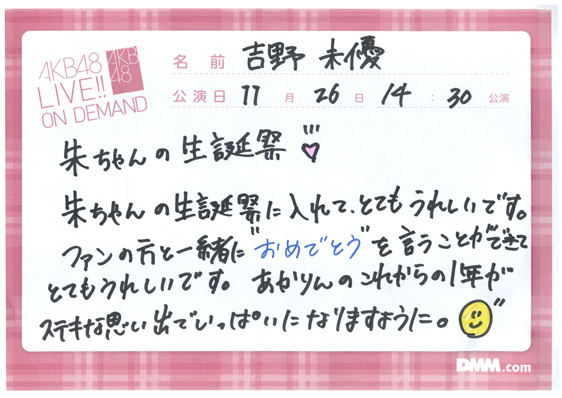 AKB48
LIVE!!
ON DEMAND
AKB
48
名前 吉野 未優
公演日 11月26日 14:30公演
朱ちゃんの生誕祭
朱ちゃんの生誕祭に入れて、とてもうれしいです。
ファンの方と一緒に"おめでとう"を言うことができて
とてもうれしいです。あかりんのこれからの1年が
ステキな思い出でいっぱいになりますように。
DMM.com